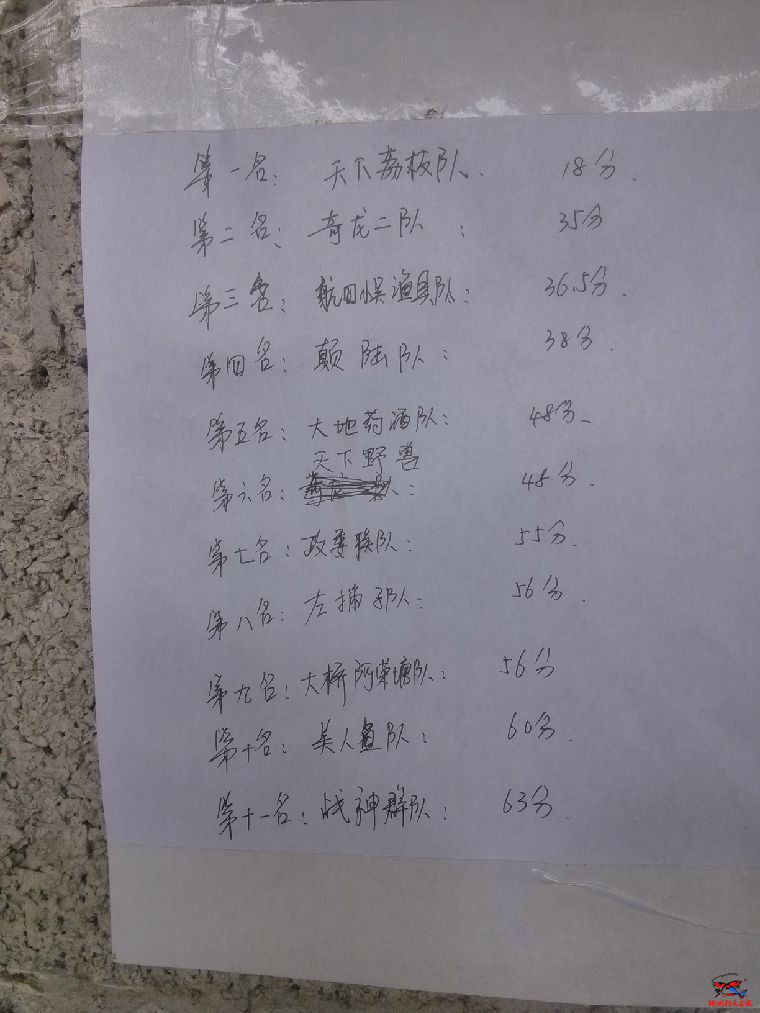 第一名: 天下荔枝队. 18分.
第二名: 奇龙二队: 35分
第三名: 航日娱渔具队: 36.5分.
第四名: 颠陆队: 38分.
第五名: 大地药酒队: 48分
天下野兽
第六名: 队: 48分.
第七名: 队: 55分.
第八名: 左捕队: 56分.
第九名: 大桥阿荣塘队: 56分
第十名: 美人鱼队: 60分.
第十一名: 战神群队: 63分.